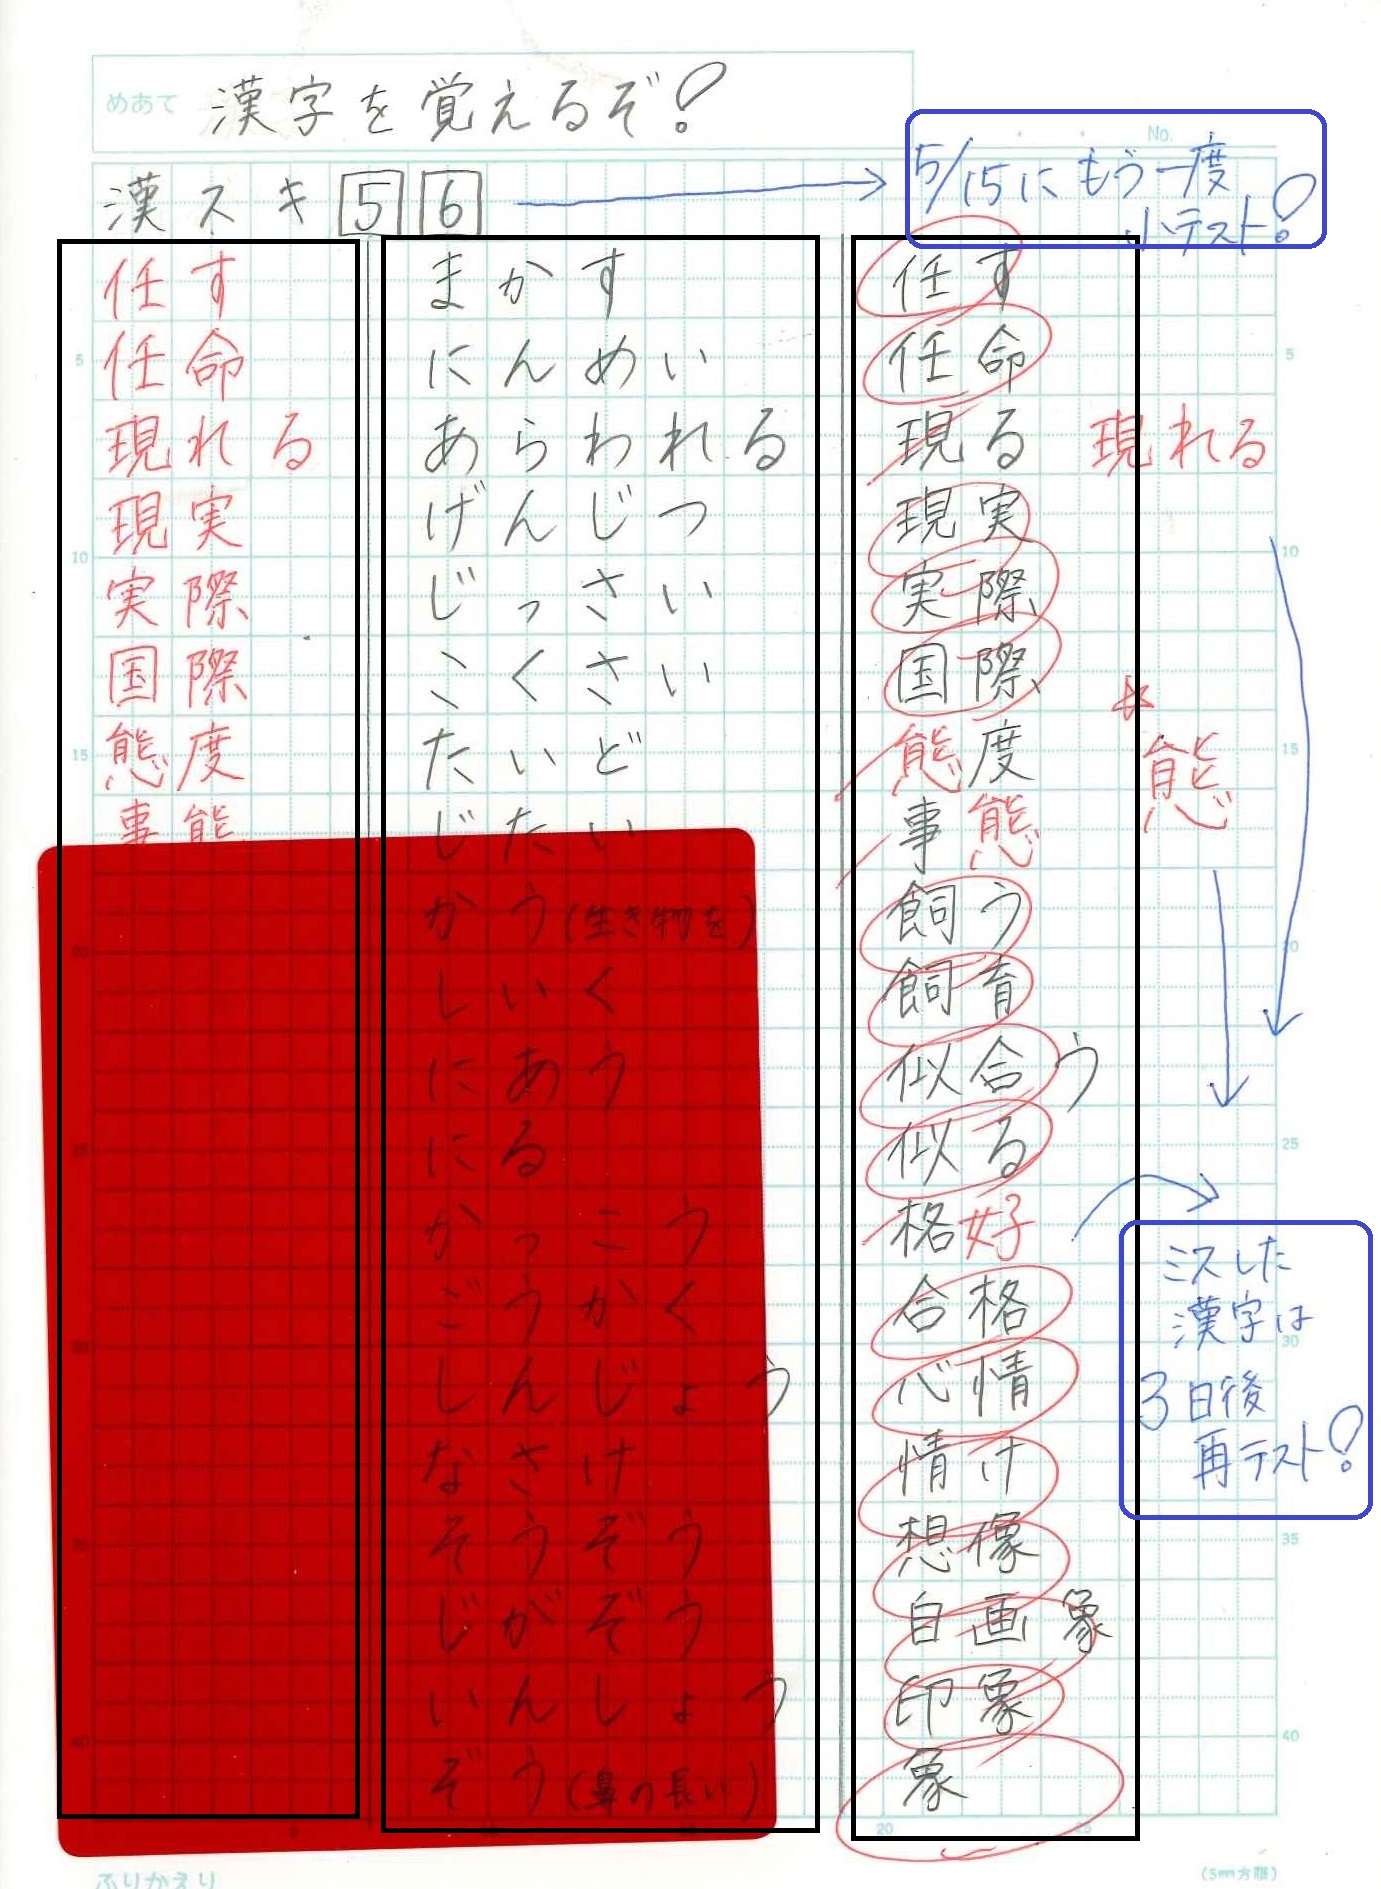 めあて 漢字を覚えるぞ!
No.
漢スキ 5 6
5/15に もう一度
小テスト!
任す まかす 任す
5 任命 にんめい 任命 5
現れる あらわれる 現る 現れる
現実 げんじつ 現実
10 実際 じっさい 実際 10
国際 こくさい 国際
15 態度 たいど 態度 態 15
事態 じたい 事態
かう(生き物を) 飼う
20 しいく 飼育 20
にあう 似合う
25 にる 似る 25
かっこう 格好
ごうかく 合格
30 しんじょう 心情 30
なさけ 情け
35 そうぞう 想像 35
じがぞう 自画象
40 いんしょう 印象 40
ぞう(鼻の長い) 象
ミスした
漢字は
3日後
再テスト!
5 10 15 20 25
ふりかえり
(5mm方眼)